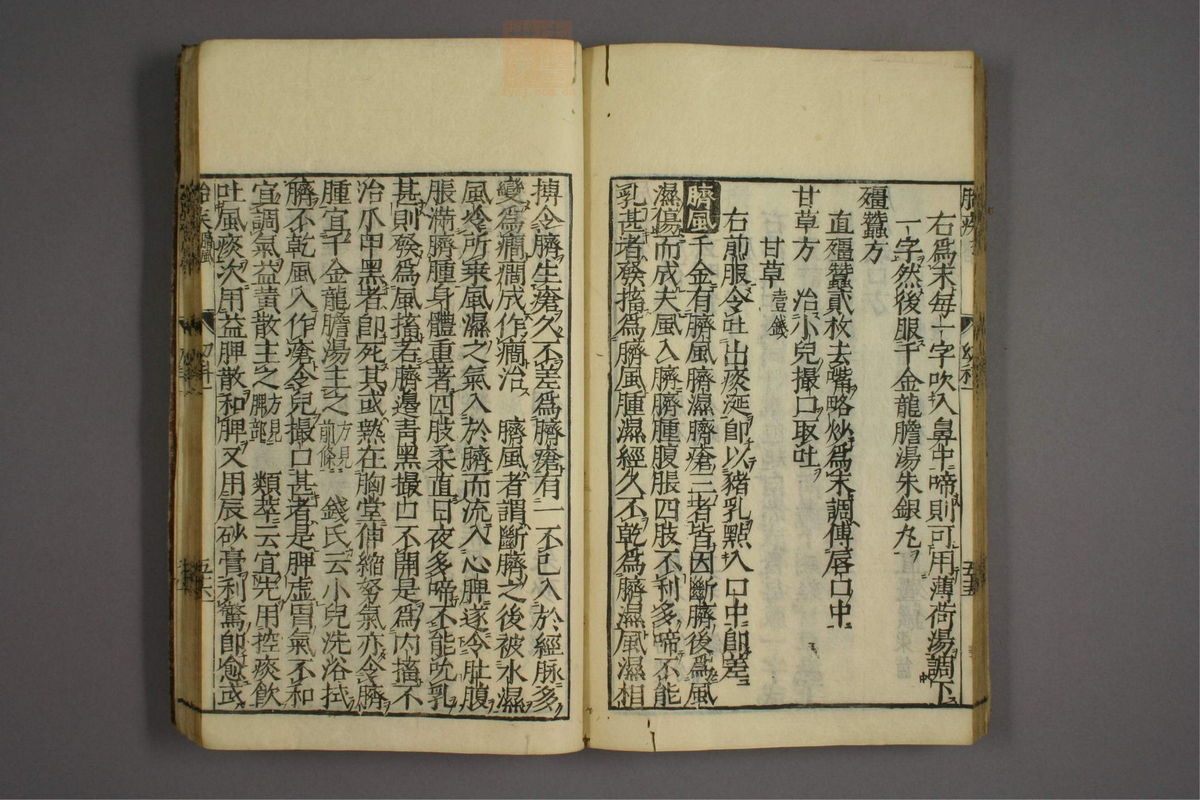 右爲末每一字吹入鼻中啼則可用薄荷湯調下
一字然後服千金龍膽湯朱銀丸
殭蠶方
直殭蠶貳枚去嘴略炒爲末調傅唇口中
甘草方 治小兒撮口取吐
甘草壹錢
右煎服令吐出痰涎即以豬乳點入口中即差
臍風 千金有臍風臍濕臍瘡三者皆因斷臍後爲風
濕傷而成夫風入臍臍腫腹脹四肢不利多啼不能
乳甚者發搐爲臍風腫濕經久不乾爲臍濕風濕相
搏令臍生瘡久不差爲臍瘡有一不已入於經脉多
變爲癎癎成作癎治 臍風者謂斷臍之後被水濕
風冷所乗風濕之氣入於臍而流入心脾遂令肚腹
脹滿臍腫身體重著四肢柔直日夜多啼不能吮乳
甚則發爲風搐若臍邊青黑撮口不開是爲内搐不
治爪甲黑者即死其或熱在胸堂伸縮努氣亦令臍
腫宜千金龍膽湯主之方見前條 錢氏云小兒洗浴拭
臍不乾風入作瘡令兒撮口甚者是脾虛冒氣不和
宜調氣益黄散主之方見脾部 類萃云宜先用控痰飲
吐風痰次用益脾散和脾又用辰砂膏利驚即愈或
五六